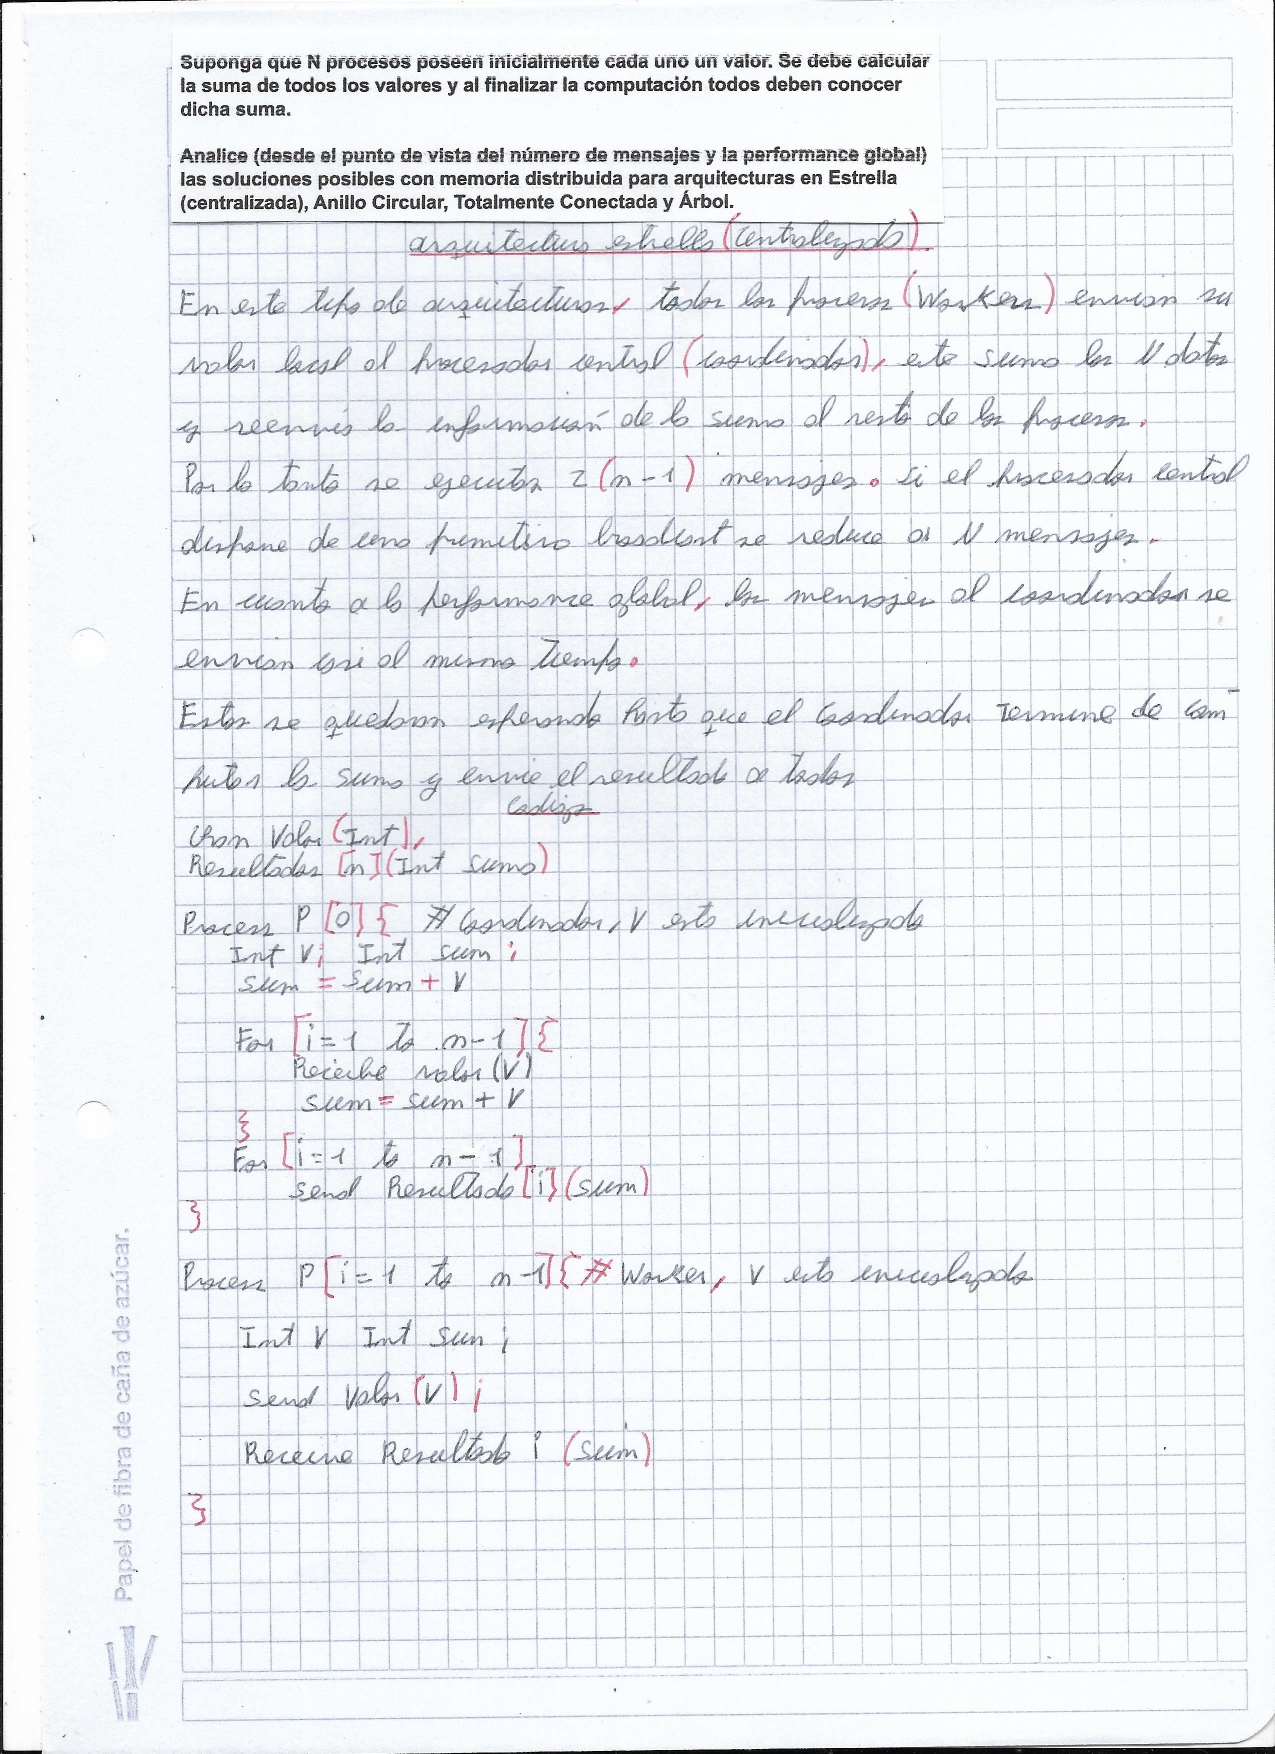 Suponga que N procesos poseen inicialmente cada uno un valor. Se debe calcular
la suma de todos los valores y al finalizar la computación todos deben conocer
dicha suma.
Analice (desde el punto de vista del número de mensajes y la performance global)
las soluciones posibles con memoria distribuida para arquitecturas en Estrella
(centralizada), Anillo Circular, Totalmente Conectada y Árbol.
arquitectura estrella (Centralizada).
En este tipo de arquitecturas, todos los procesos (Workers) envian su
valor local al procesador central (coordinador), este suma los N datos
y reenvia la información de la suma al resto de los procesos.
Por lo tanto se ejecutan 2(n-1) mensajes. Si el procesador central
dispone de una primitiva broadcast se reduce a N mensajes.
En cuanto a la performance global, los mensajes al coordinador se
envian casi al mismo Tiempo.
Estos se quedaran esperando hasta que el Coordinador Termine de com-
putar la suma y envie el resultado a todos
Codigo
Chan Valor (Int),
Resultados [n] (Int suma)
Process P[0]{ # Coordinador, V esta inicializado
Int V; Int sum;
sum = sum + V
For [i=1 to n-1]{
Receibe valor (V)
sum = sum + V
}
For [i=1 to n-1]
send Resultado [i] (sum)
}
Process P[i=1 to n-1]{ # Worker, V esta inicializado
Int V Int sum;
send Valor (V);
Receive Resultado i (sum)
}
Papel de fibra de caña de azúcar.